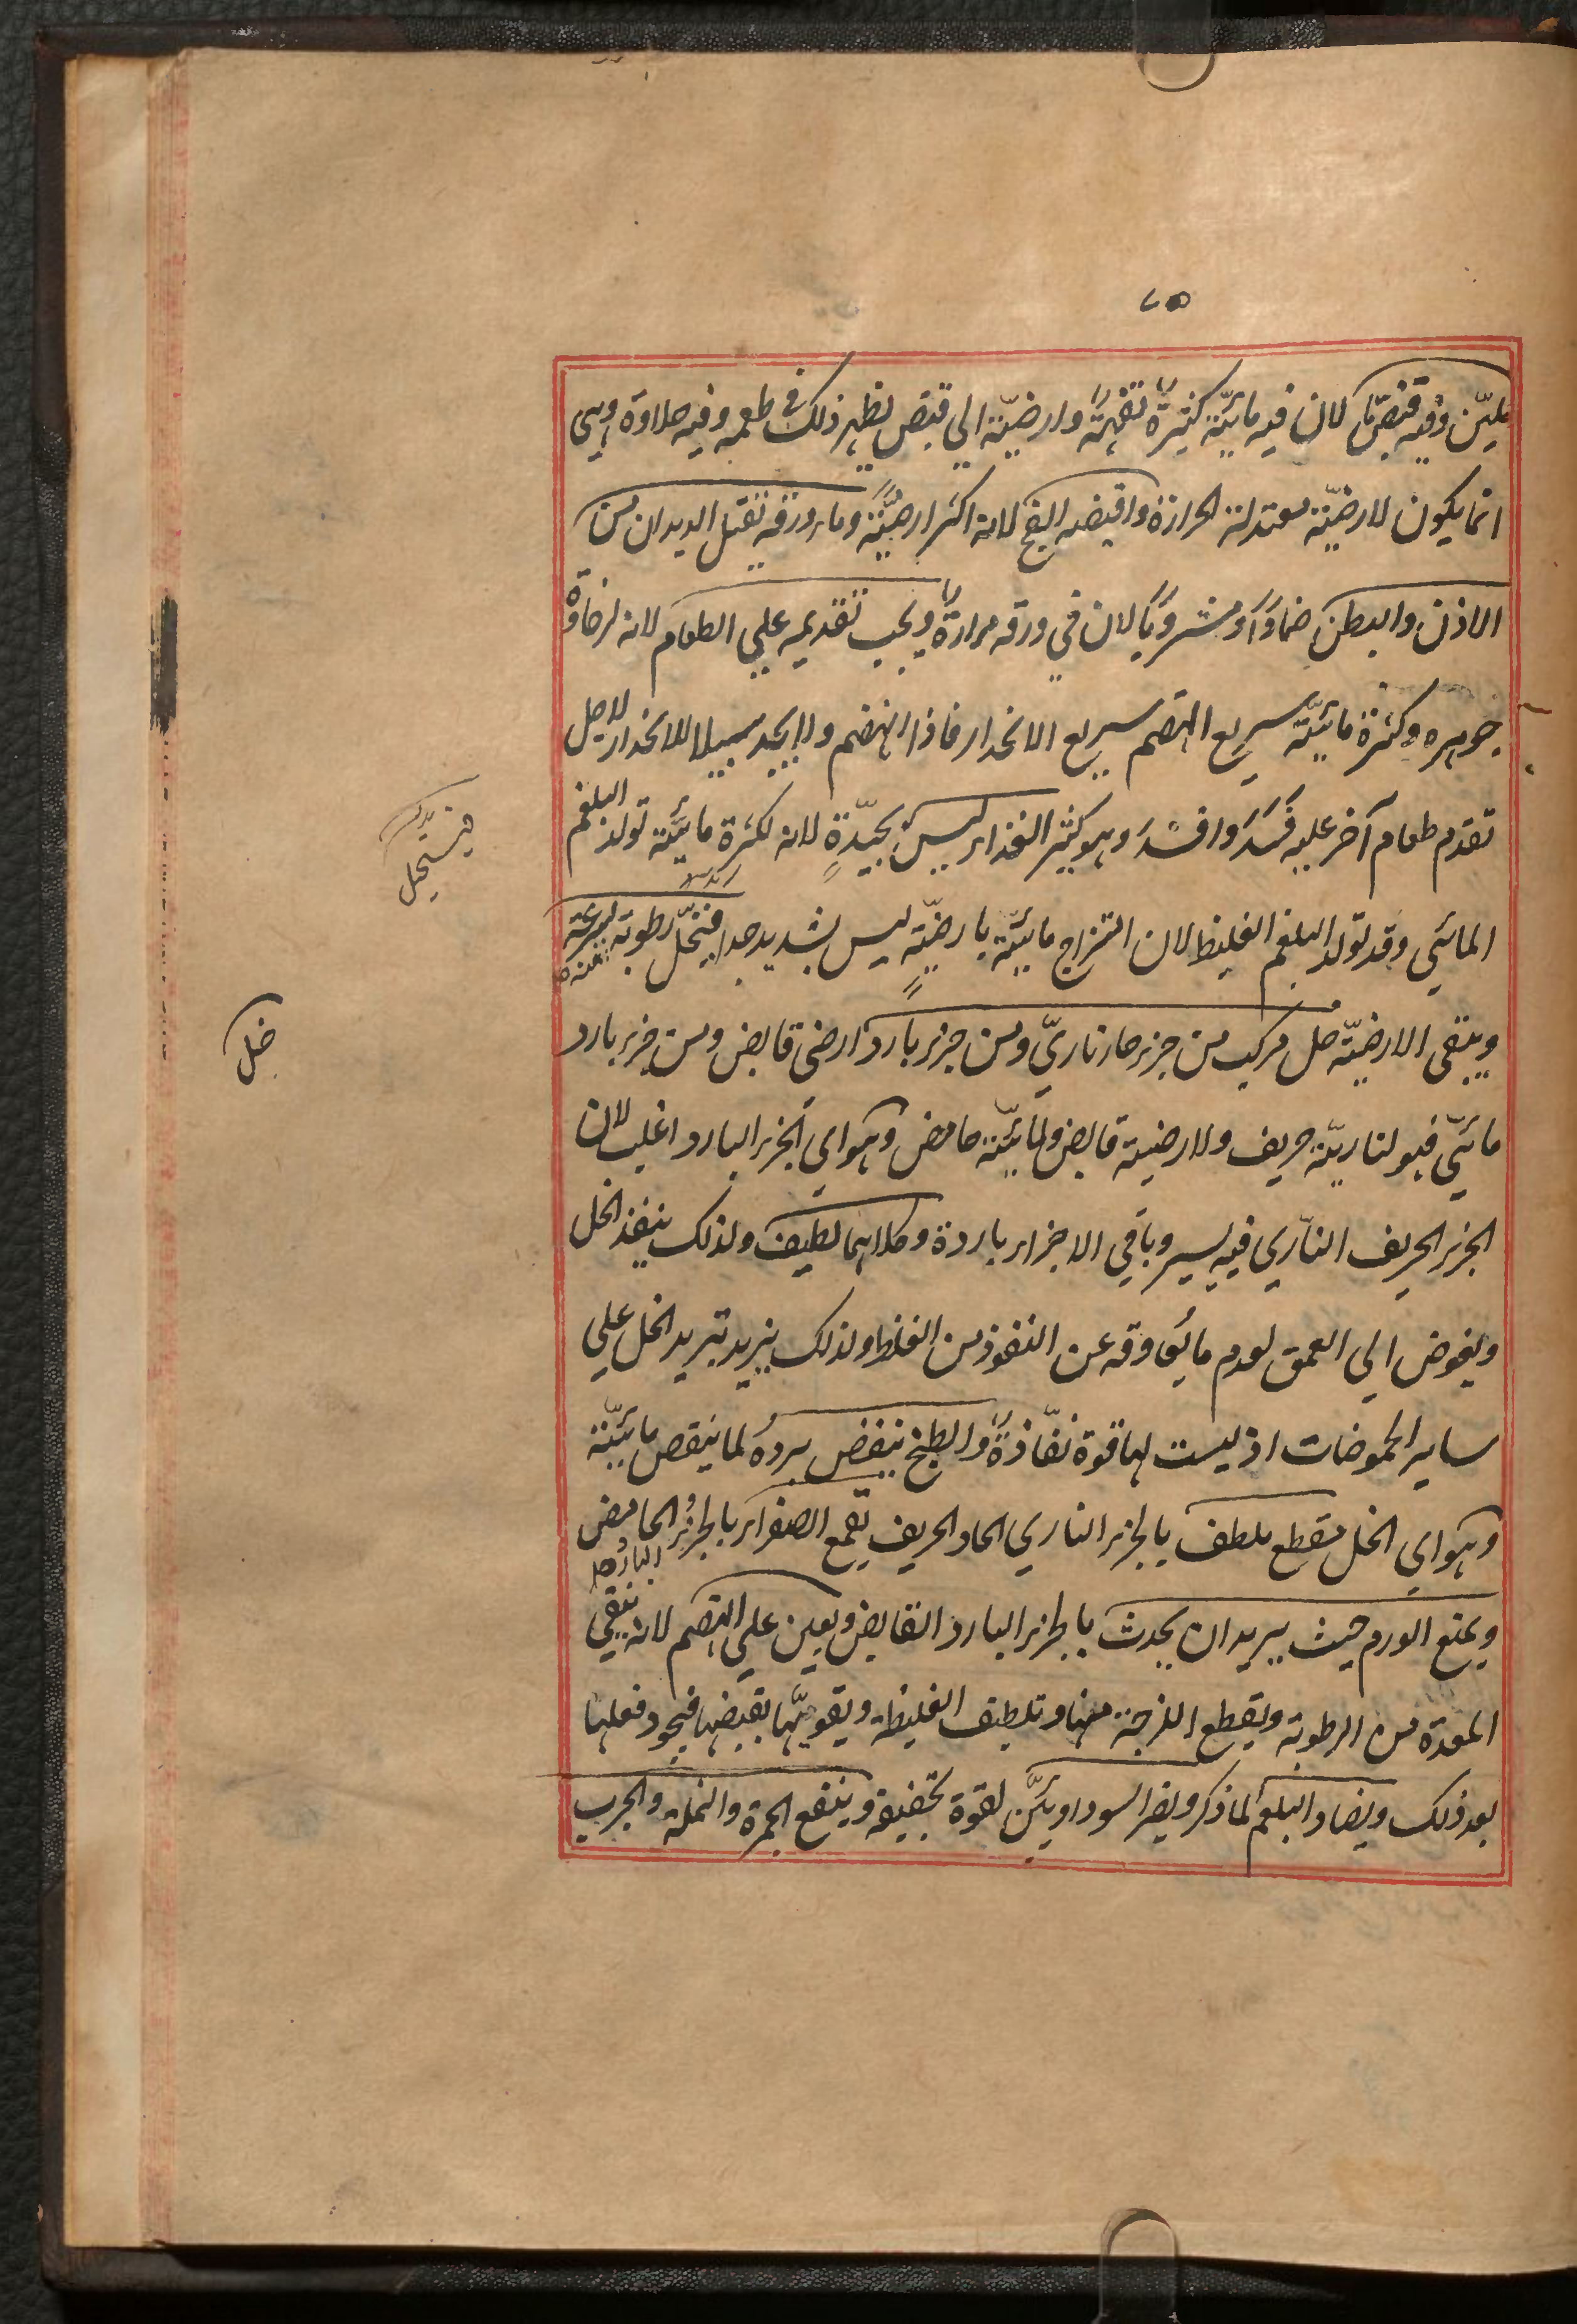 ٧٥
يليّن وفيه قبض ما لان فيه مائيّة كثيرة تفهة وارضيّة الي قبض يظهر ذلك في طعمه وفيه حلاوة وهي
انما يكون لارضيّة معتدلة الحرارة واقبضه الفج لانه اكثر ارضيّة وماء ورقه يقتل الديدان من
الاذن والبطن ضمادًا ومشروبًا لان في ورقه مرارة ويجب تقديمه علي الطعام لانه لرخاوة
جوهره وكثرة مائيّة سريع الهضم سريع الانحدار فاذا انهضم ولا يجد سبيلا للانحدار لاجل
تقدم طعام آخر عليه فَسَدَ وافسَدَ وهو كثير الغذاء ليس بجيّدةٍ لانه لكثرة مائيّة تولد البلغم
المائي وقد تولد البلغم الغليظ لان امتزاج مائيّة بارضيّةٍ ليس بشديد جدا فيتحلّ رطوبة بسرعة
فيستحيل
ويبقي الارضيّة خل مركب من جزء حار ناريّ ومن جزء بارد ارضي قابض ومن جزء بارد
خل
مائيّ فهو لناريّة حريف ولارضية قابض ولمائيّة حامض وهو اي الجزء البارد اغلب لان
الجزء الحريف الناري فيه يسير وباقي الاجزاء باردة وكلاهما لطيف ولذلك ينفذ الخل
ويغوض الي العمق لعدم ما يُعاوقه عن النفوذ من الغلظ ولذلك يزيد تبريد الخل علي
ساير الحموضات اذ ليست لها قوة نفّاذة والطبخ ينقص بردهُ لما ينقص مائيّة
وهو اي الخل مقطع ملطف بالجزء الناري الحاد الحريف يقمع الصفراء بالجزء الحامض
البارد
ويمنع الورم حيث يريد ان يحدث بالجزء البارد القابض ويعين علي الهضم لانه ينقي
المعدة من الرطوبة ويقطع اللزجة منها وتلطيف الغليظة ويقويّها بقبضها فيجود فعلها
بعد ذلك ويضاد البلغم لما ذكر ويضر السوداويّن لقوة تجفيفه وينفع الحمرة والنملة والجرب